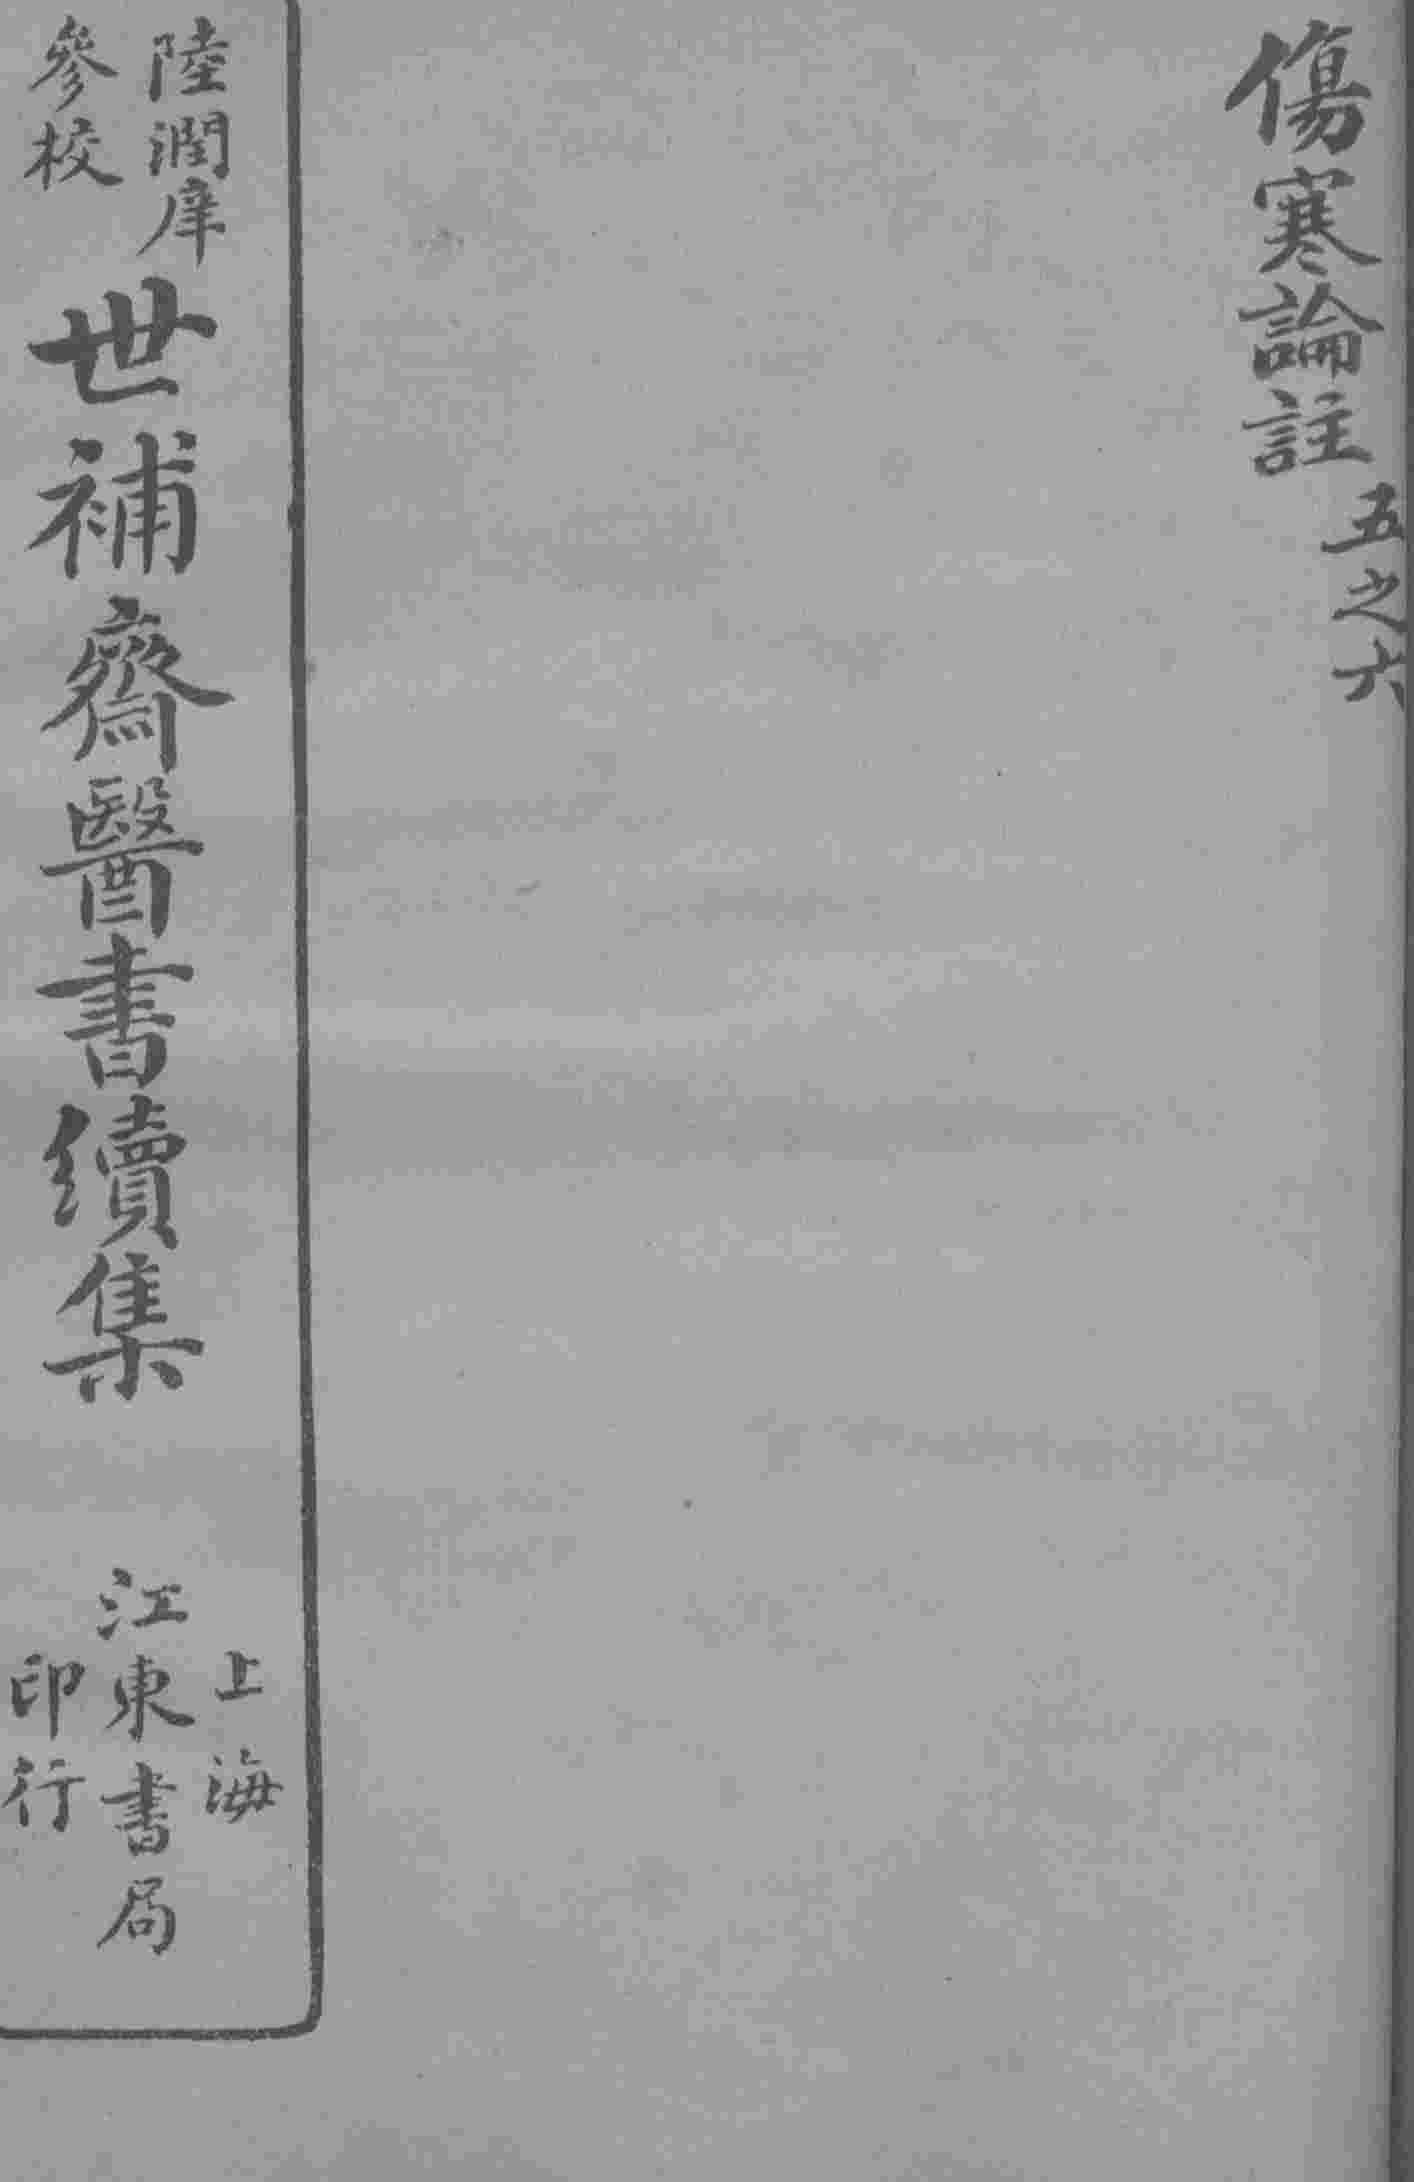 傷寒論註
五之六
陸潤庠
參校
世補齋醫書續集
上海
江東書局
印行